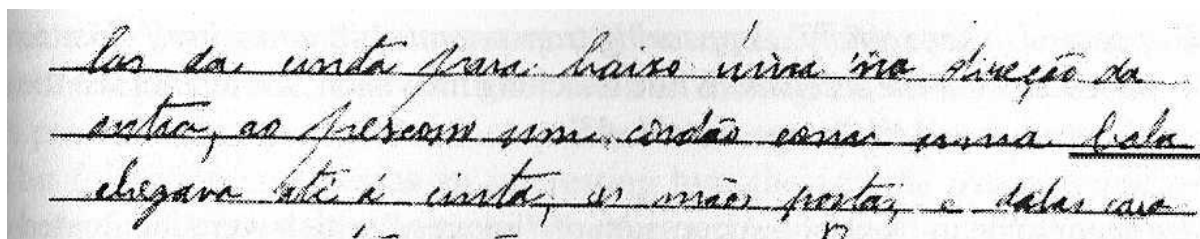 las da cinta para baixo uma na direção da
outra, ao pescoso um cordão com uma bola
chegava até á cinta, as mãos postas, e delas